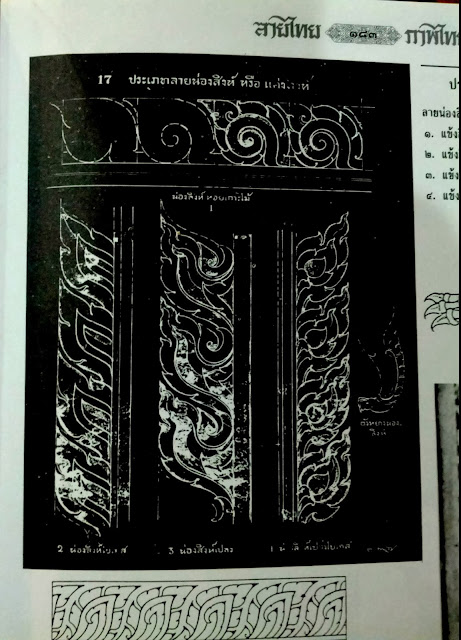 ลายไทย ๑๘๓ ภาพไทย
17 ประเภทลายน่องสิงห์ หรือ แข้งสิงห์
ลายน่องสิ
๑. แข้ง
๒. แข้ง
๓. แข้ง
๔. แข้ง
น่องสิงห์ หอยเกาะไม้
1
2 น่องสิงห์ใบเทศ
3 น่องสิงห์เปลว